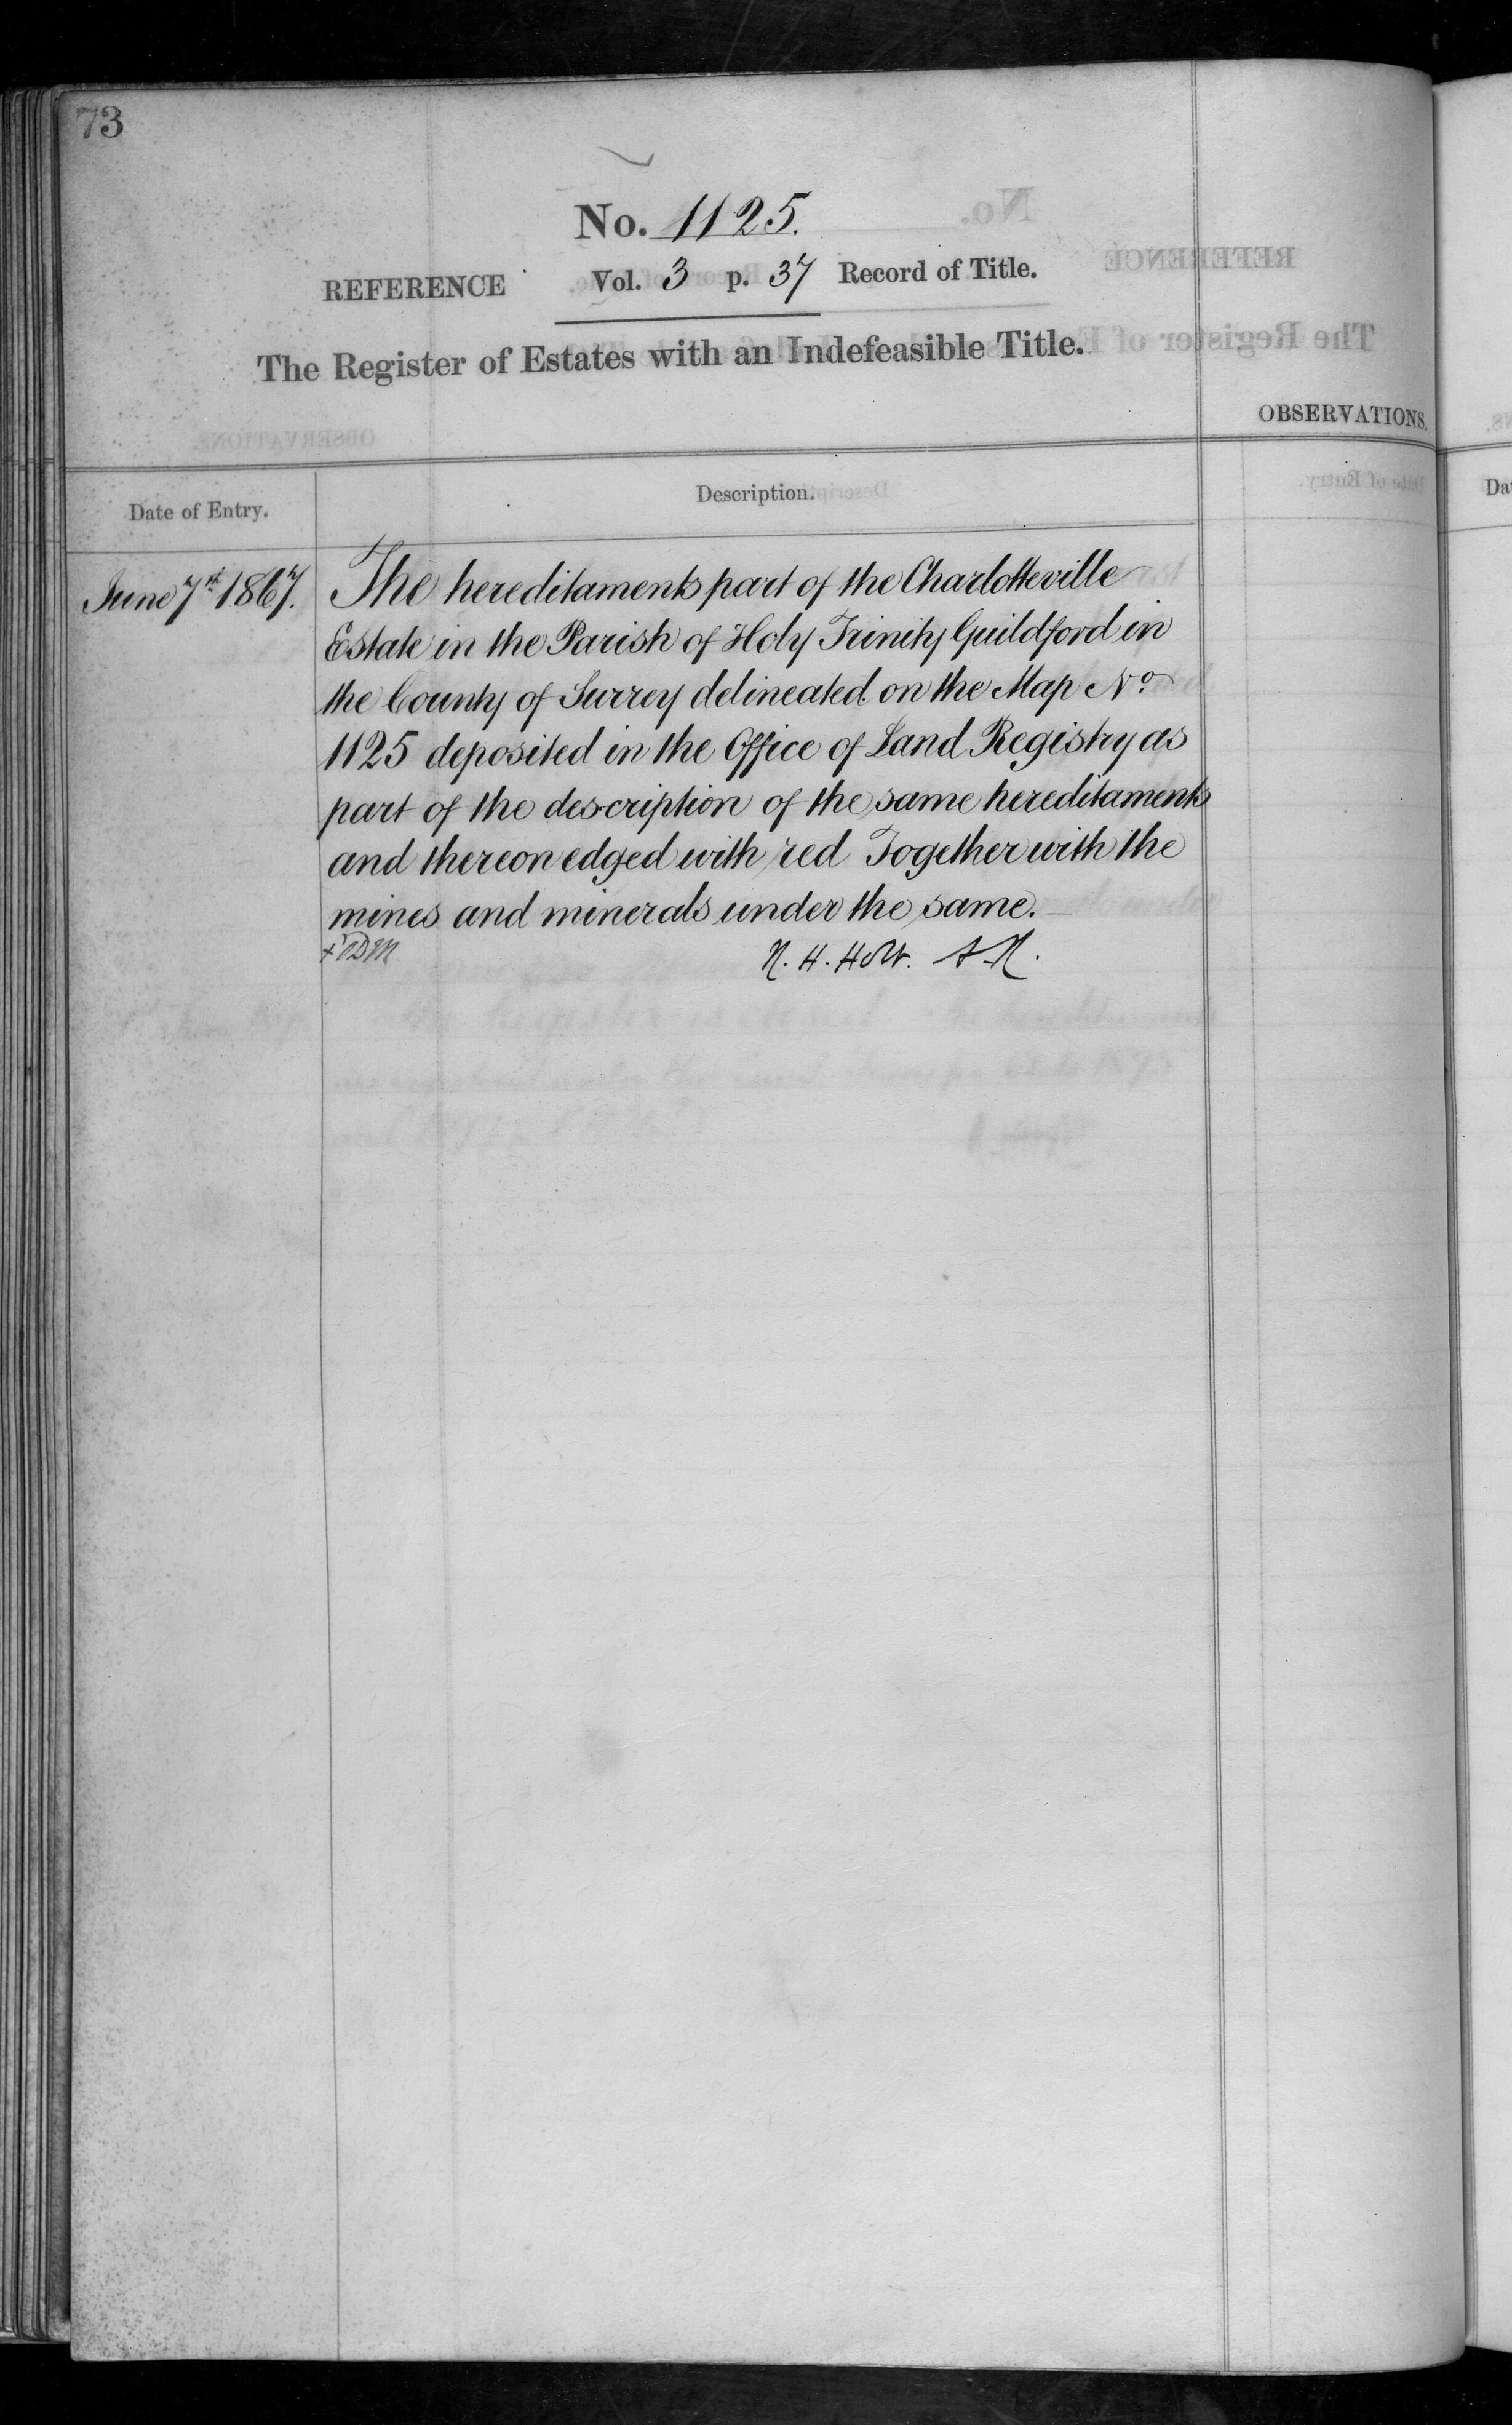 73
No. 1125.
REFERENCE Vol. 3 p. 37 Record of Title.
The Register of Estates with an Indefeasible Title.
OBSERVATIONS.
Date of Entry.
Description.
June 7th 1867.
The hereditaments part of the Charlotteville
Estate in the Parish of Holy Trinity Guildford in
the County of Surrey delineated on the Map No
1125 deposited in the Office of Land Registry as
part of the description of the same hereditaments
and thereon edged with red Together with the
mines and minerals under the same.
N. H. Holt. A.R.
Da